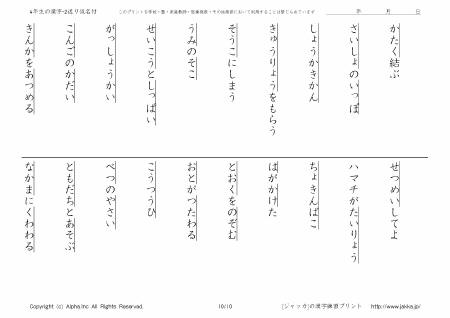 4年生の漢字-2送り仮名付
このプリントを学校・塾・家庭教師・医療機関・その他施設において利用することは禁じられています
年 月 日
かたく結ぶ
さいしょのいっぽ
しょうかきかん
きゅうりょうをもらう
そうこにしまう
うみのそこ
せいこうとしっぱい
がっしょうかい
こんごのかだい
きんかをあつめる
せつめいしてよ
ハマチがたいりょう
ちょきんばこ
はがかけた
とおくをのぞむ
おとがつたわる
こうつうひ
べつのやさい
ともだちとあそぶ
なかまにくわわる
Copyright (c) Alpha.Inc All Rights Reserved.
10/10
[ジャッカ]の漢字練習プリント http://www.jakka.jp/